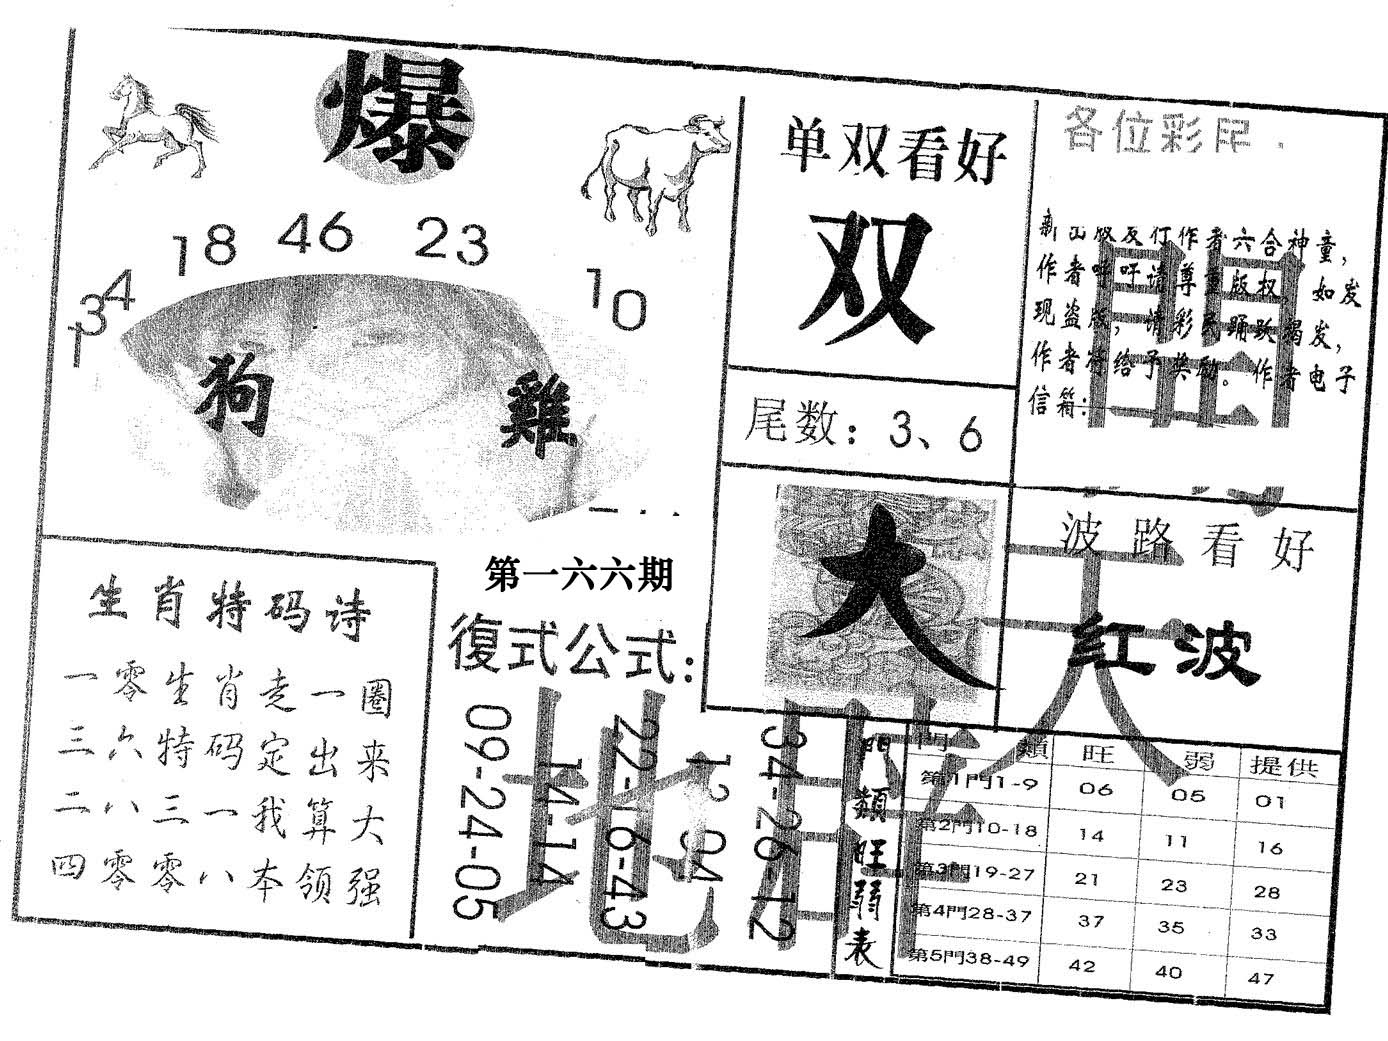 爆
18 46 23
34
13
10
狗 雞
单双看好
双
尾数：3、6
大
各位彩民
新出版发行作者六合神童，
作者呼吁请尊重版权，如发
现盗版，请彩民踊跃揭发，
作者将给予奖励。作者电子
信箱：
波路看好
红波
第一六六期
復式公式：
09-24-05
14-14
22-16-43
12 04
34-26-12
生肖特码诗
一零生肖走一圈
三六特码定出来
二八三一我算大
四零零八本领强
門類旺弱表
門類 旺 弱 提供
第1門1-9 06 05 01
第2門10-18 14 11 16
第3門19-27 21 23 28
第4門28-37 37 35 33
第5門38-49 42 40 47